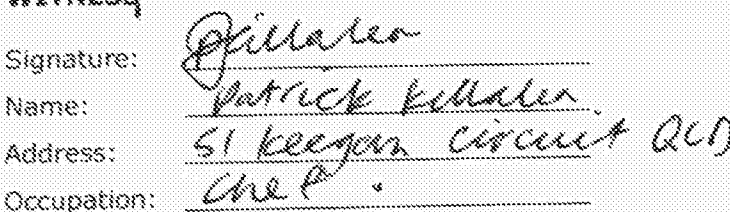 WITNESS
Signature: PKillalea
Name: Patrick Killalea
Address: 51 Keegan circuit QLD
Occupation: Chef.